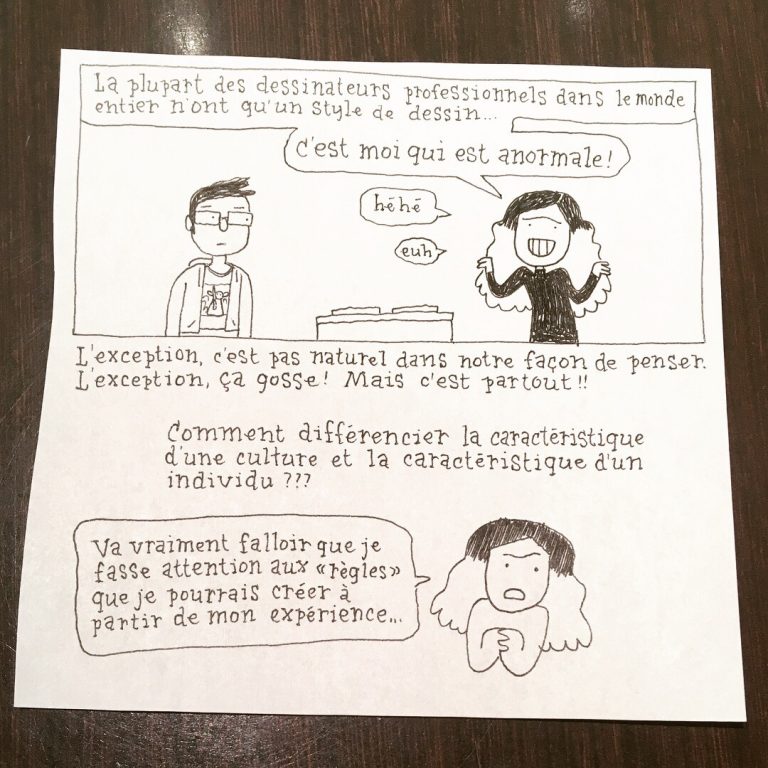 La plupart des dessinateurs professionnels dans le monde
entier n'ont qu'un style de dessin...
C'est moi qui est anormale!
héhé
euh
L'exception, c'est pas naturel dans notre façon de penser.
L'exception, ça gosse! Mais c'est partout!!
Comment différencier la caractéristique
d'une culture et la caractéristique d'un
individu ???
Va vraiment falloir que je
fasse attention aux «règles»
que je pourrais créer à
partir de mon expérience...